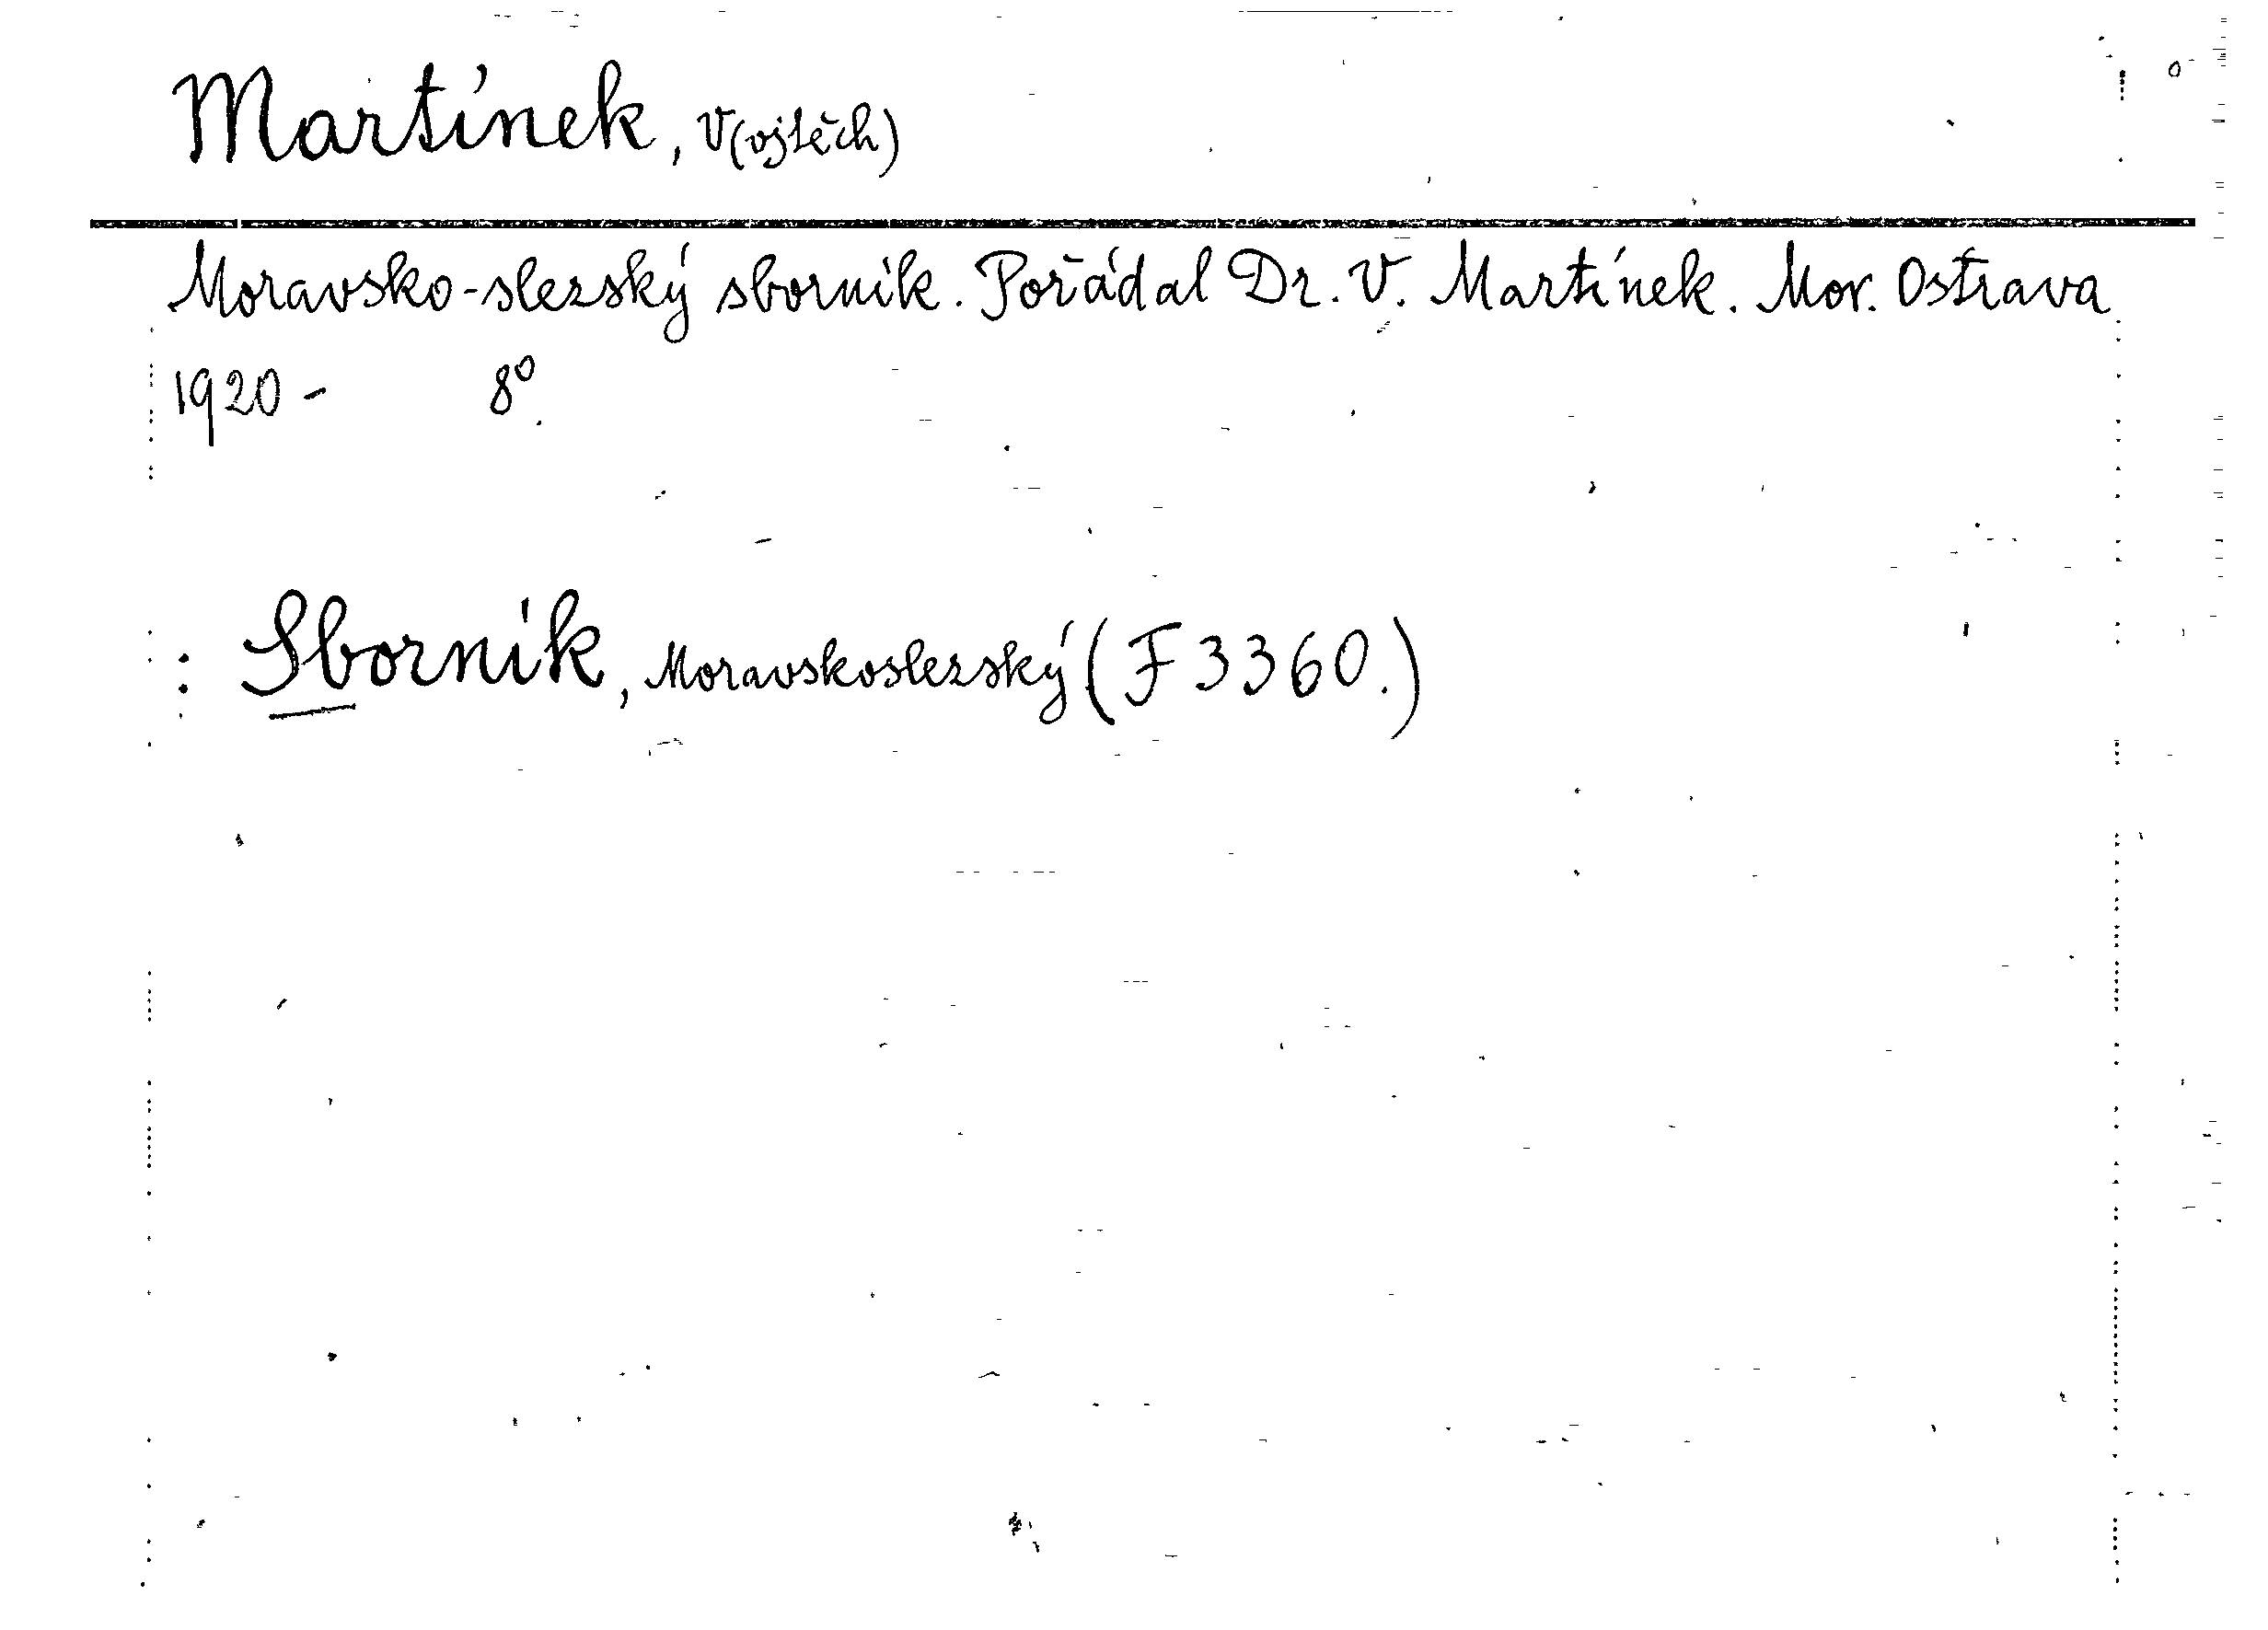 Martínek, V(ojtěch)
Moravsko-slezský sborník. Pořádal Dr. V. Martínek. Mor. Ostrava
1920- 8°.
: Sborník, Moravskoslezský (F 3360.)